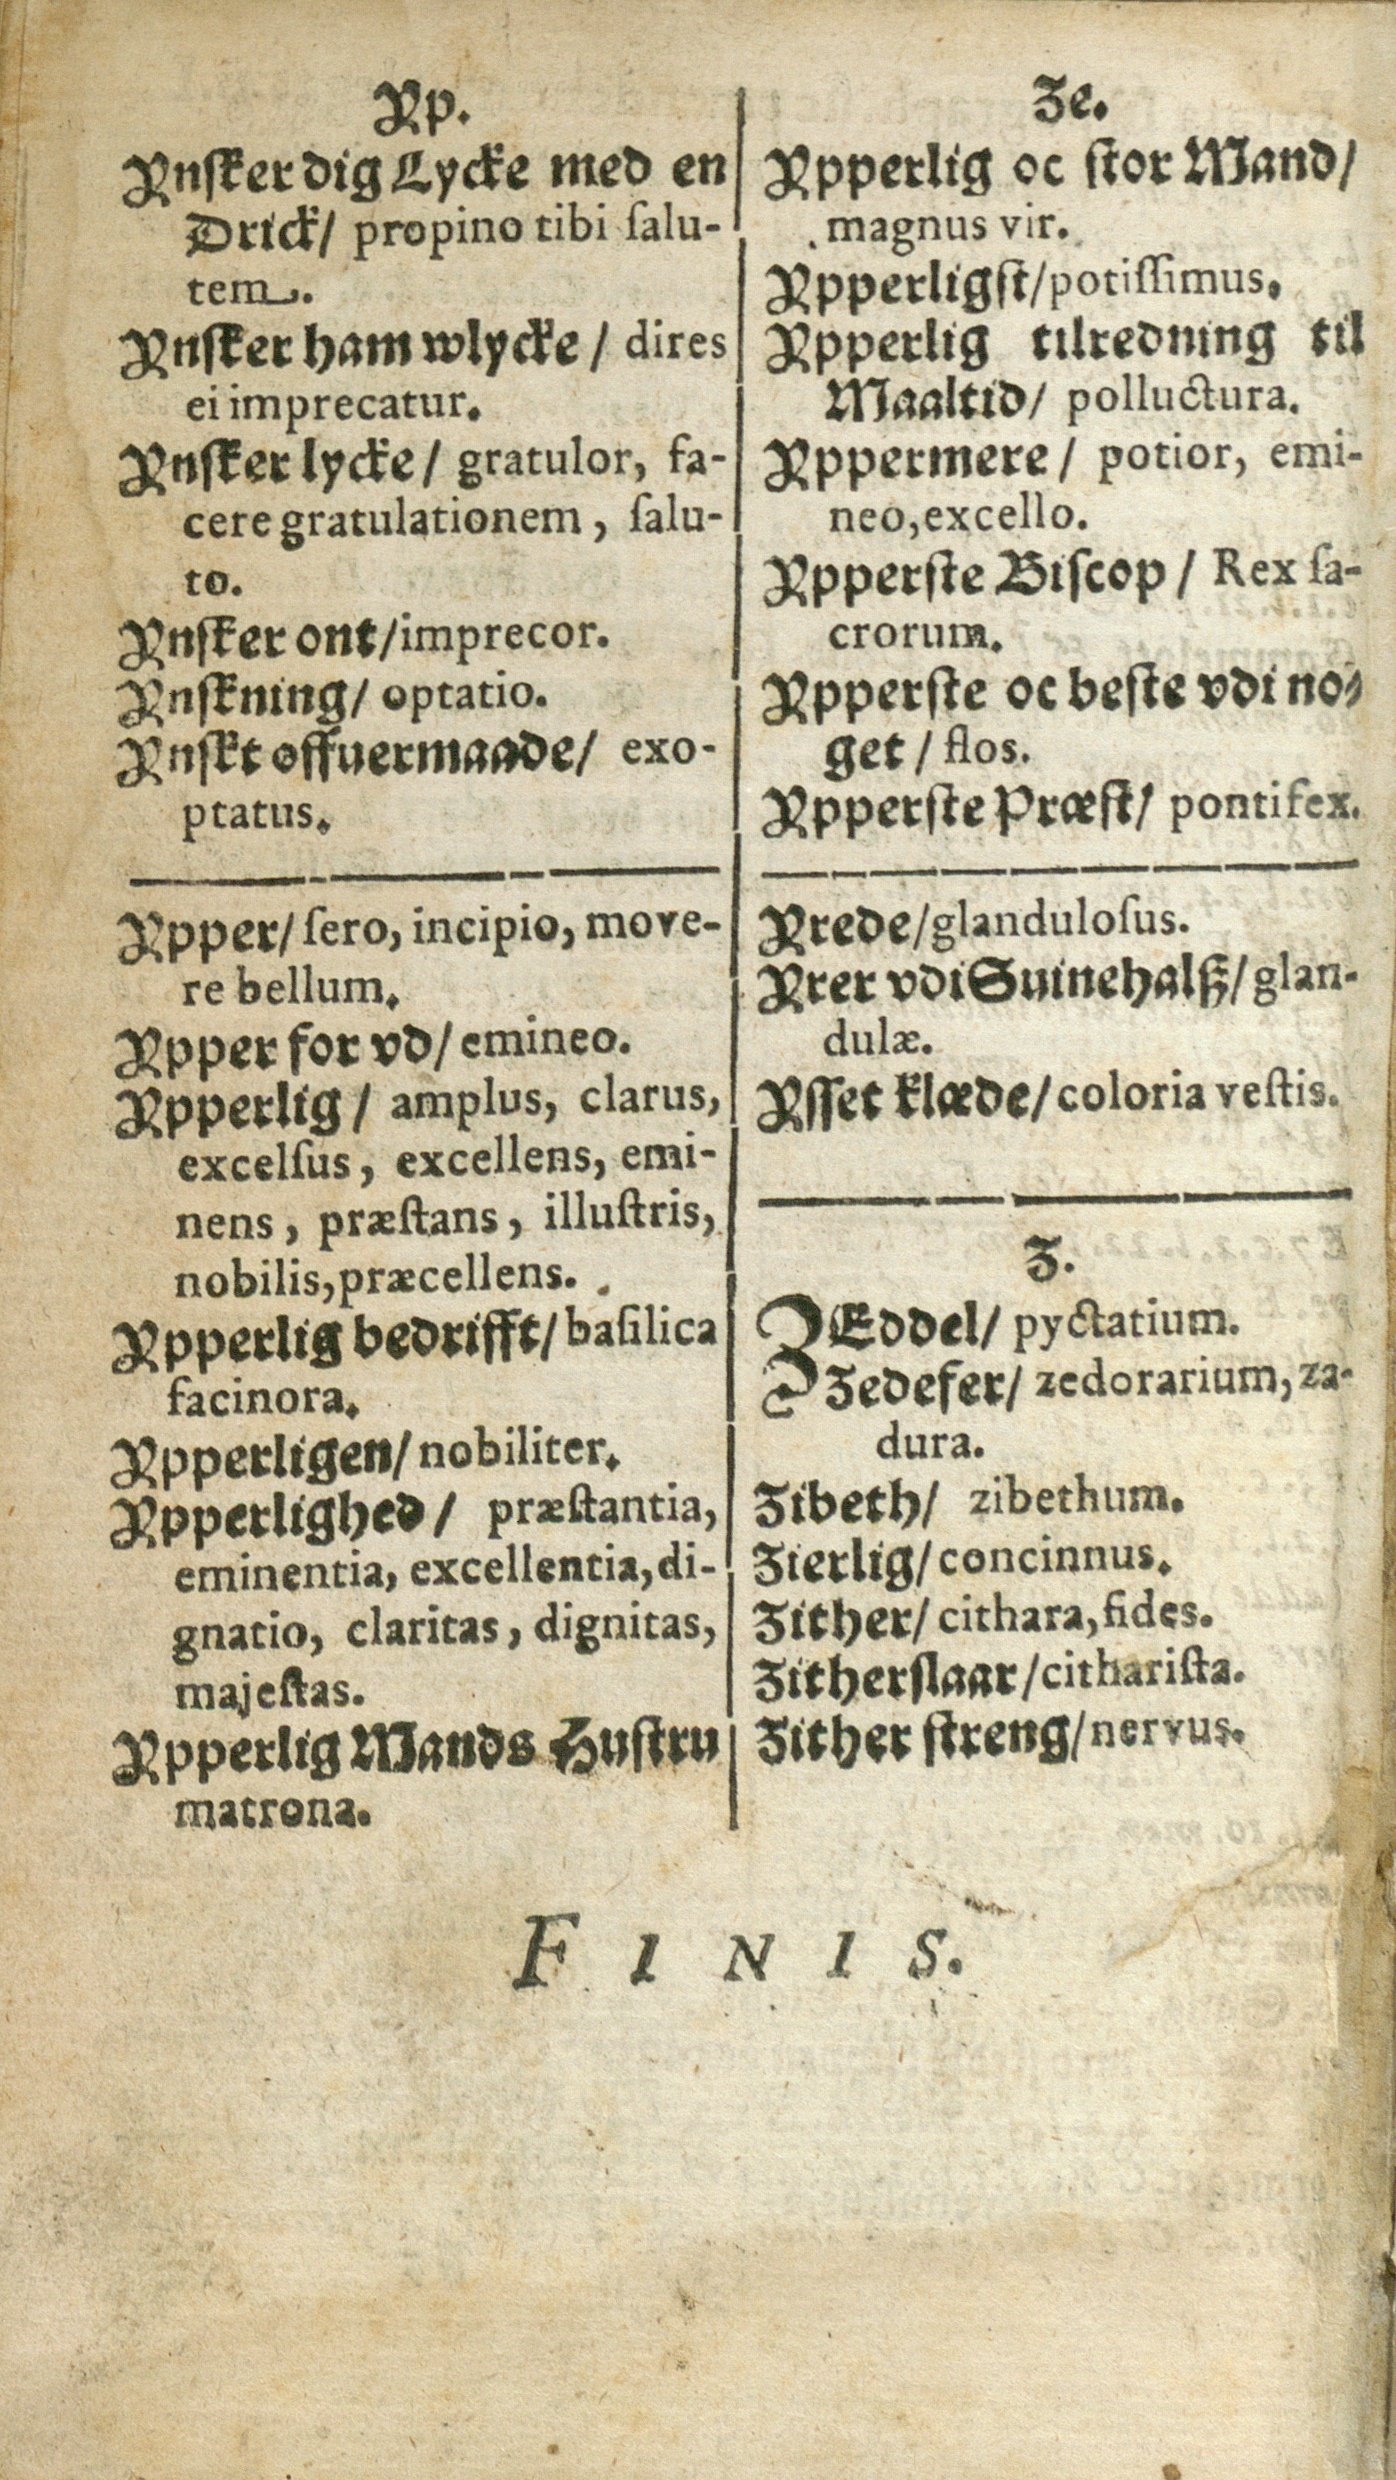 Yp.
Ynsker dig Lycke med en
Drick/ propino tibi ſalu-
tem.
Ynsker ham wlycke / dires
ei imprecatur.
Ynsker lycke / gratulor, fa-
cere gratulationem, ſalu-
to.
Ynſker ont/imprecor.
Ynſkning/ optatio.
Ynſkt offuermaade/ exo-
ptatus.
Ypper/ ſero, incipio, move-
re bellum.
Ypper for vd/ emineo.
Ypperlig / amplus, clarus,
excelſus, excellens, emi-
nens, præſtans, illuſtris,
nobilis, præcellens.
Ypperlig bedrifft/ baſilica
facinora.
Ypperligen/ nobiliter.
Ypperlighed / præſtantia,
eminentia, excellentia, di-
gnatio, claritas, dignitas,
majeſtas.
Ypperlig Mands Huſtru
matrona.
Ze.
Ypperlig oc ſtor Mand/
magnus vir.
Ypperligſt/potiſſimus.
Ypperlig tilredning til
Maaltid/ polluctura.
Yppermere / potior, emi-
neo, excello.
Ypperſte Biſcop / Rex ſa-
crorum.
Ypperſte oc beſte vdi no-
get / flos.
Ypperſte Præſt/ pontifex.
Yrede/glanduloſus.
Yrer vdi Suinehalß/ glan-
dulæ.
Yſſet klæde/ coloria veſtis.
Z.
ZEddel/ pyctatium.
Zedefer/ zedorarium, za-
dura.
Zibeth/ zibethum.
Zierlig/ concinnus.
Zither/ cithara, fides.
Zitherſlaar/cithariſta.
Zither ſtreng/nervus.
FINIS.